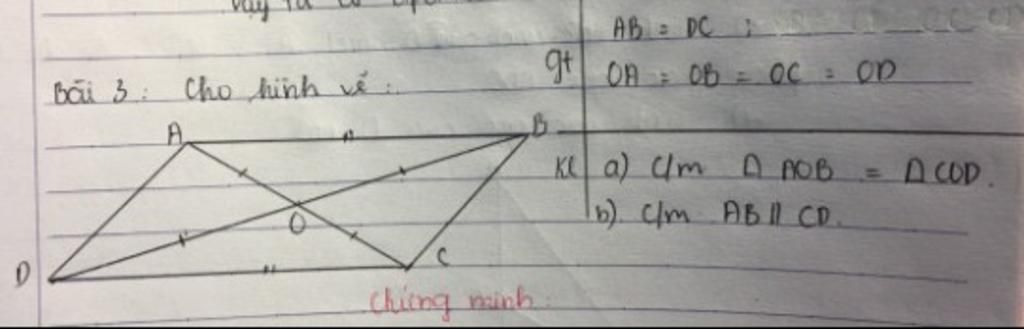 AB = DC ;
gt
OA = OB = OC = OD
Bài 3: Cho hình vẽ:
A
B
O
D
C
Kl a) C/m Δ AOB = Δ COD.
b) C/m AB // CD.
Chứng minh: